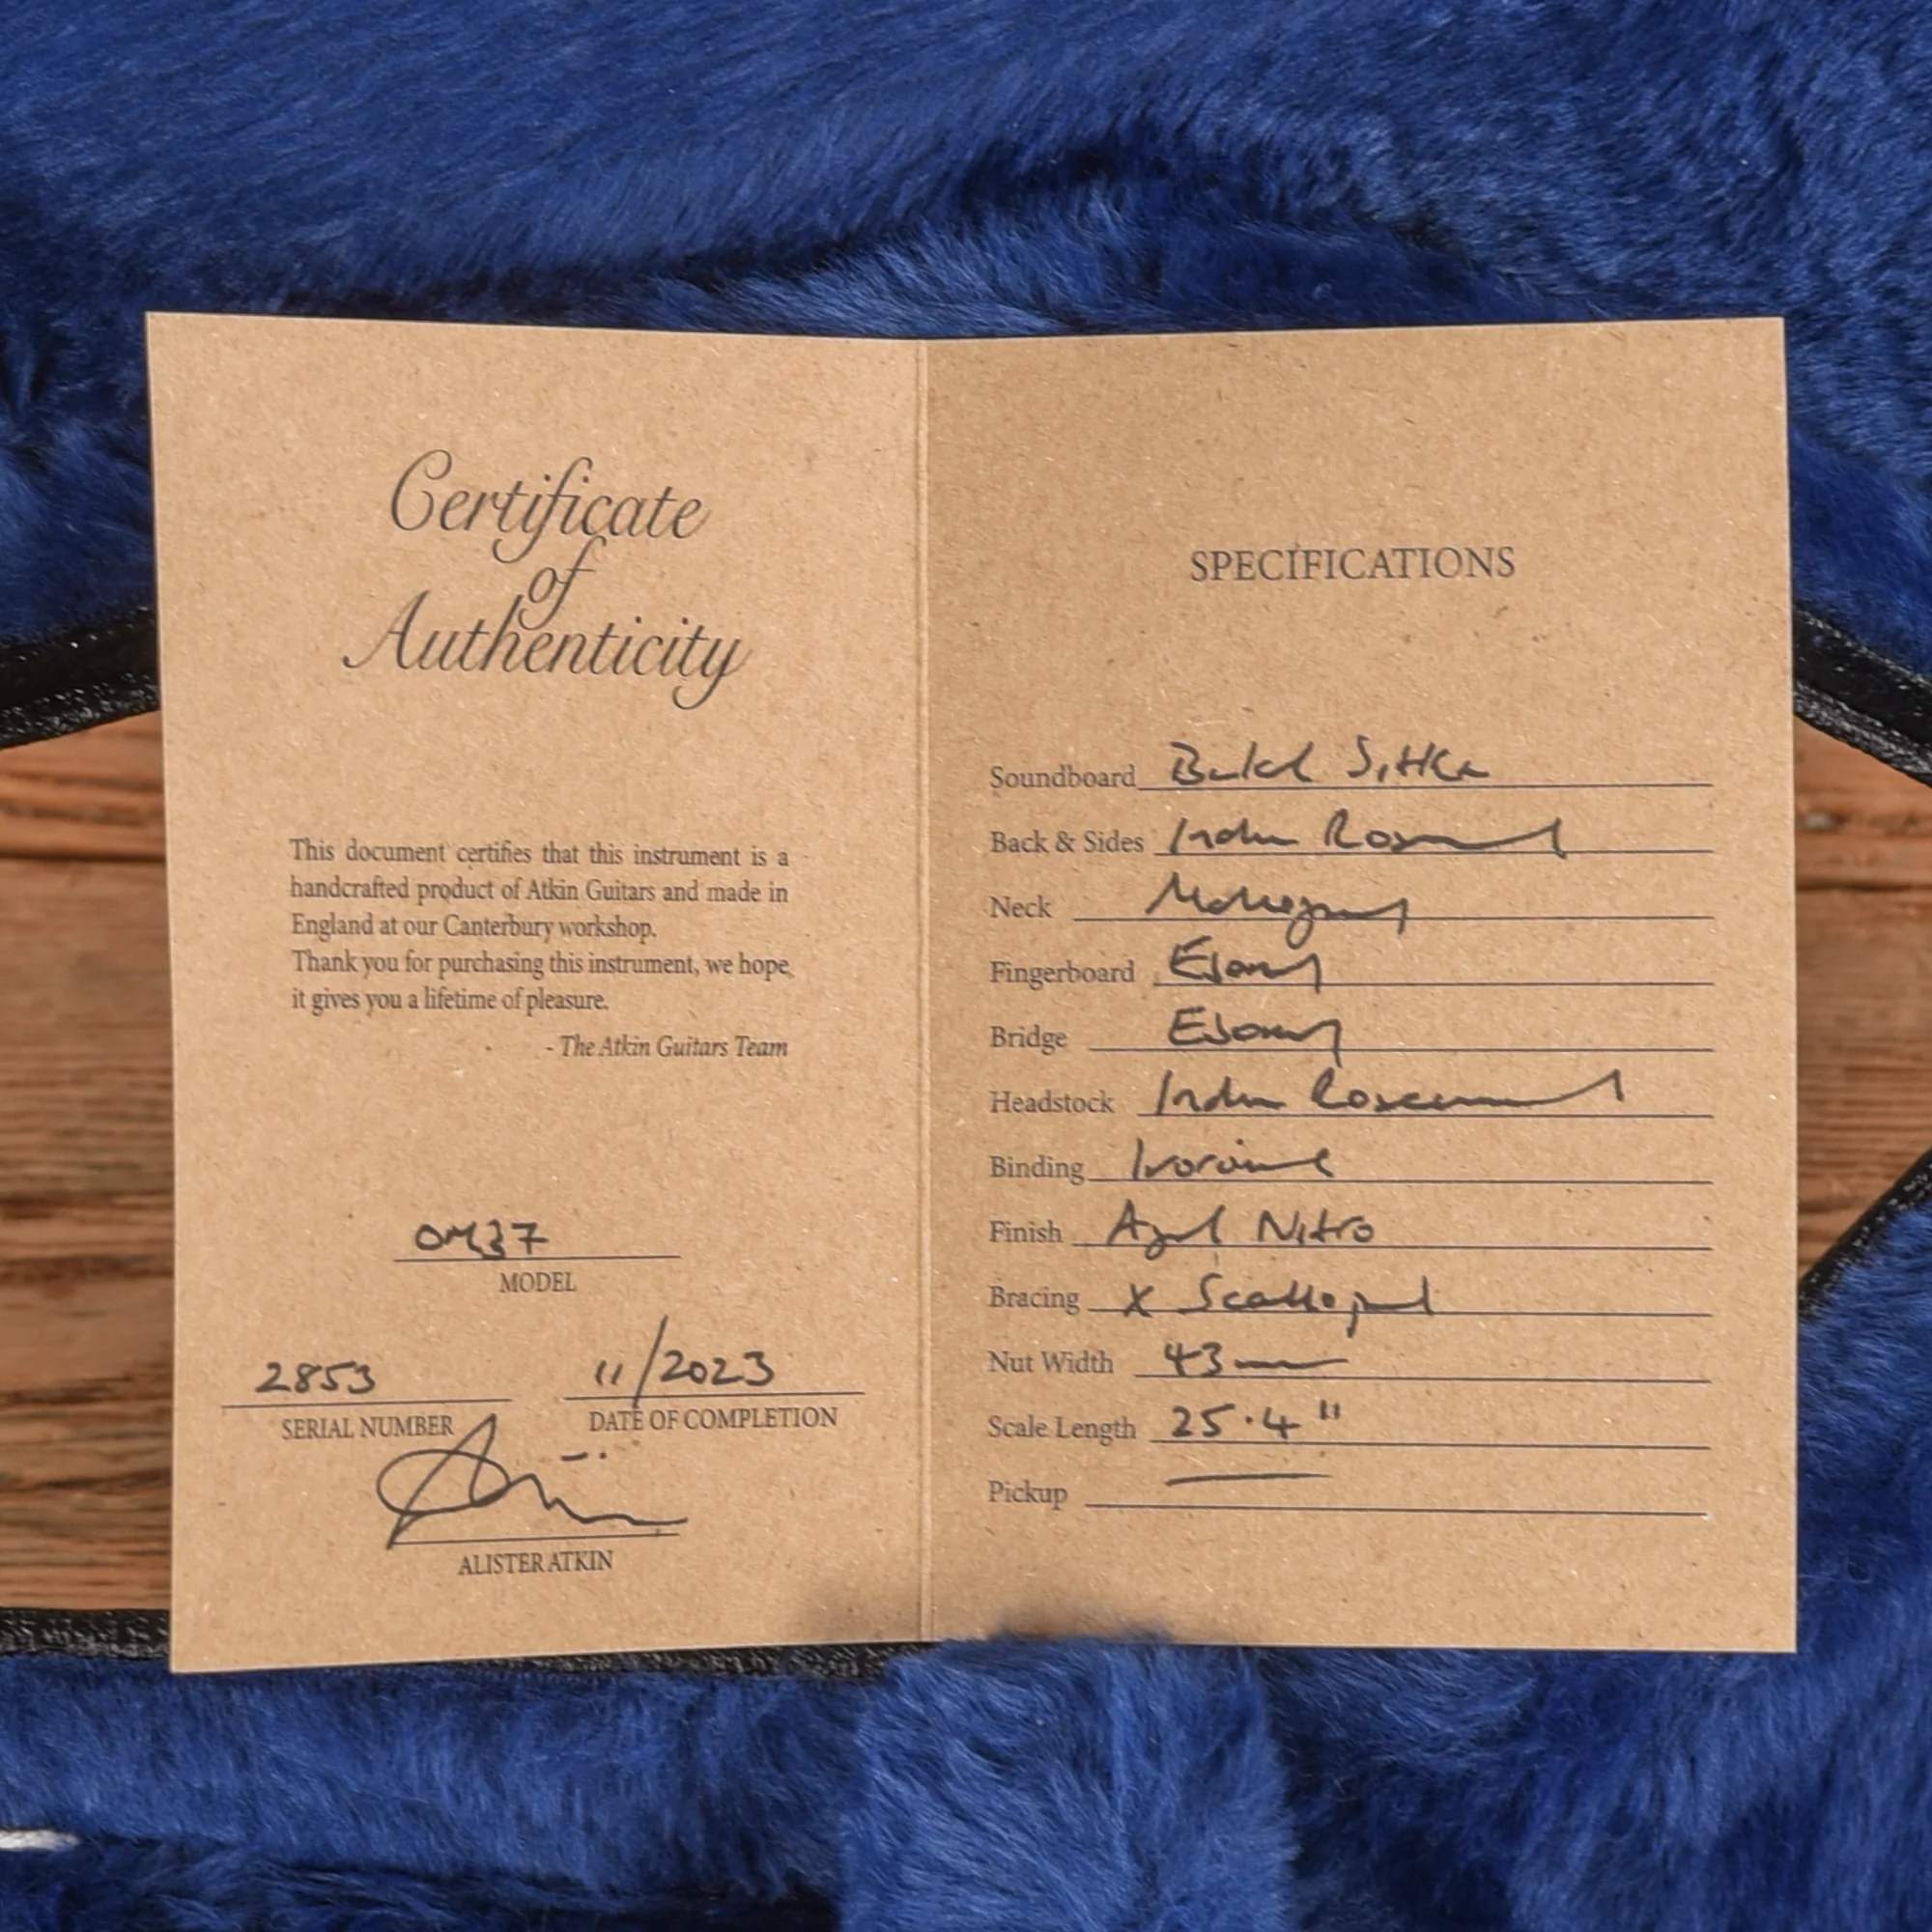 Certificate
of
Authenticity
This document certifies that this instrument is a
handcrafted product of Atkin Guitars and made in
England at our Canterbury workshop.
Thank you for purchasing this instrument, we hope
it gives you a lifetime of pleasure.
- The Atkin Guitars Team
OM37
MODEL
2853
SERIAL NUMBER
11/2023
DATE OF COMPLETION
ALISTER ATKIN
SPECIFICATIONS
Soundboard Baked Sitka
Back & Sides Indian Rosewood
Neck Mahogany
Fingerboard Ebony
Bridge Ebony
Headstock Indian Rosewood
Binding Ivoroid
Finish Aged Nitro
Bracing X Scalloped
Nut Width 43mm
Scale Length 25.4"
Pickup —